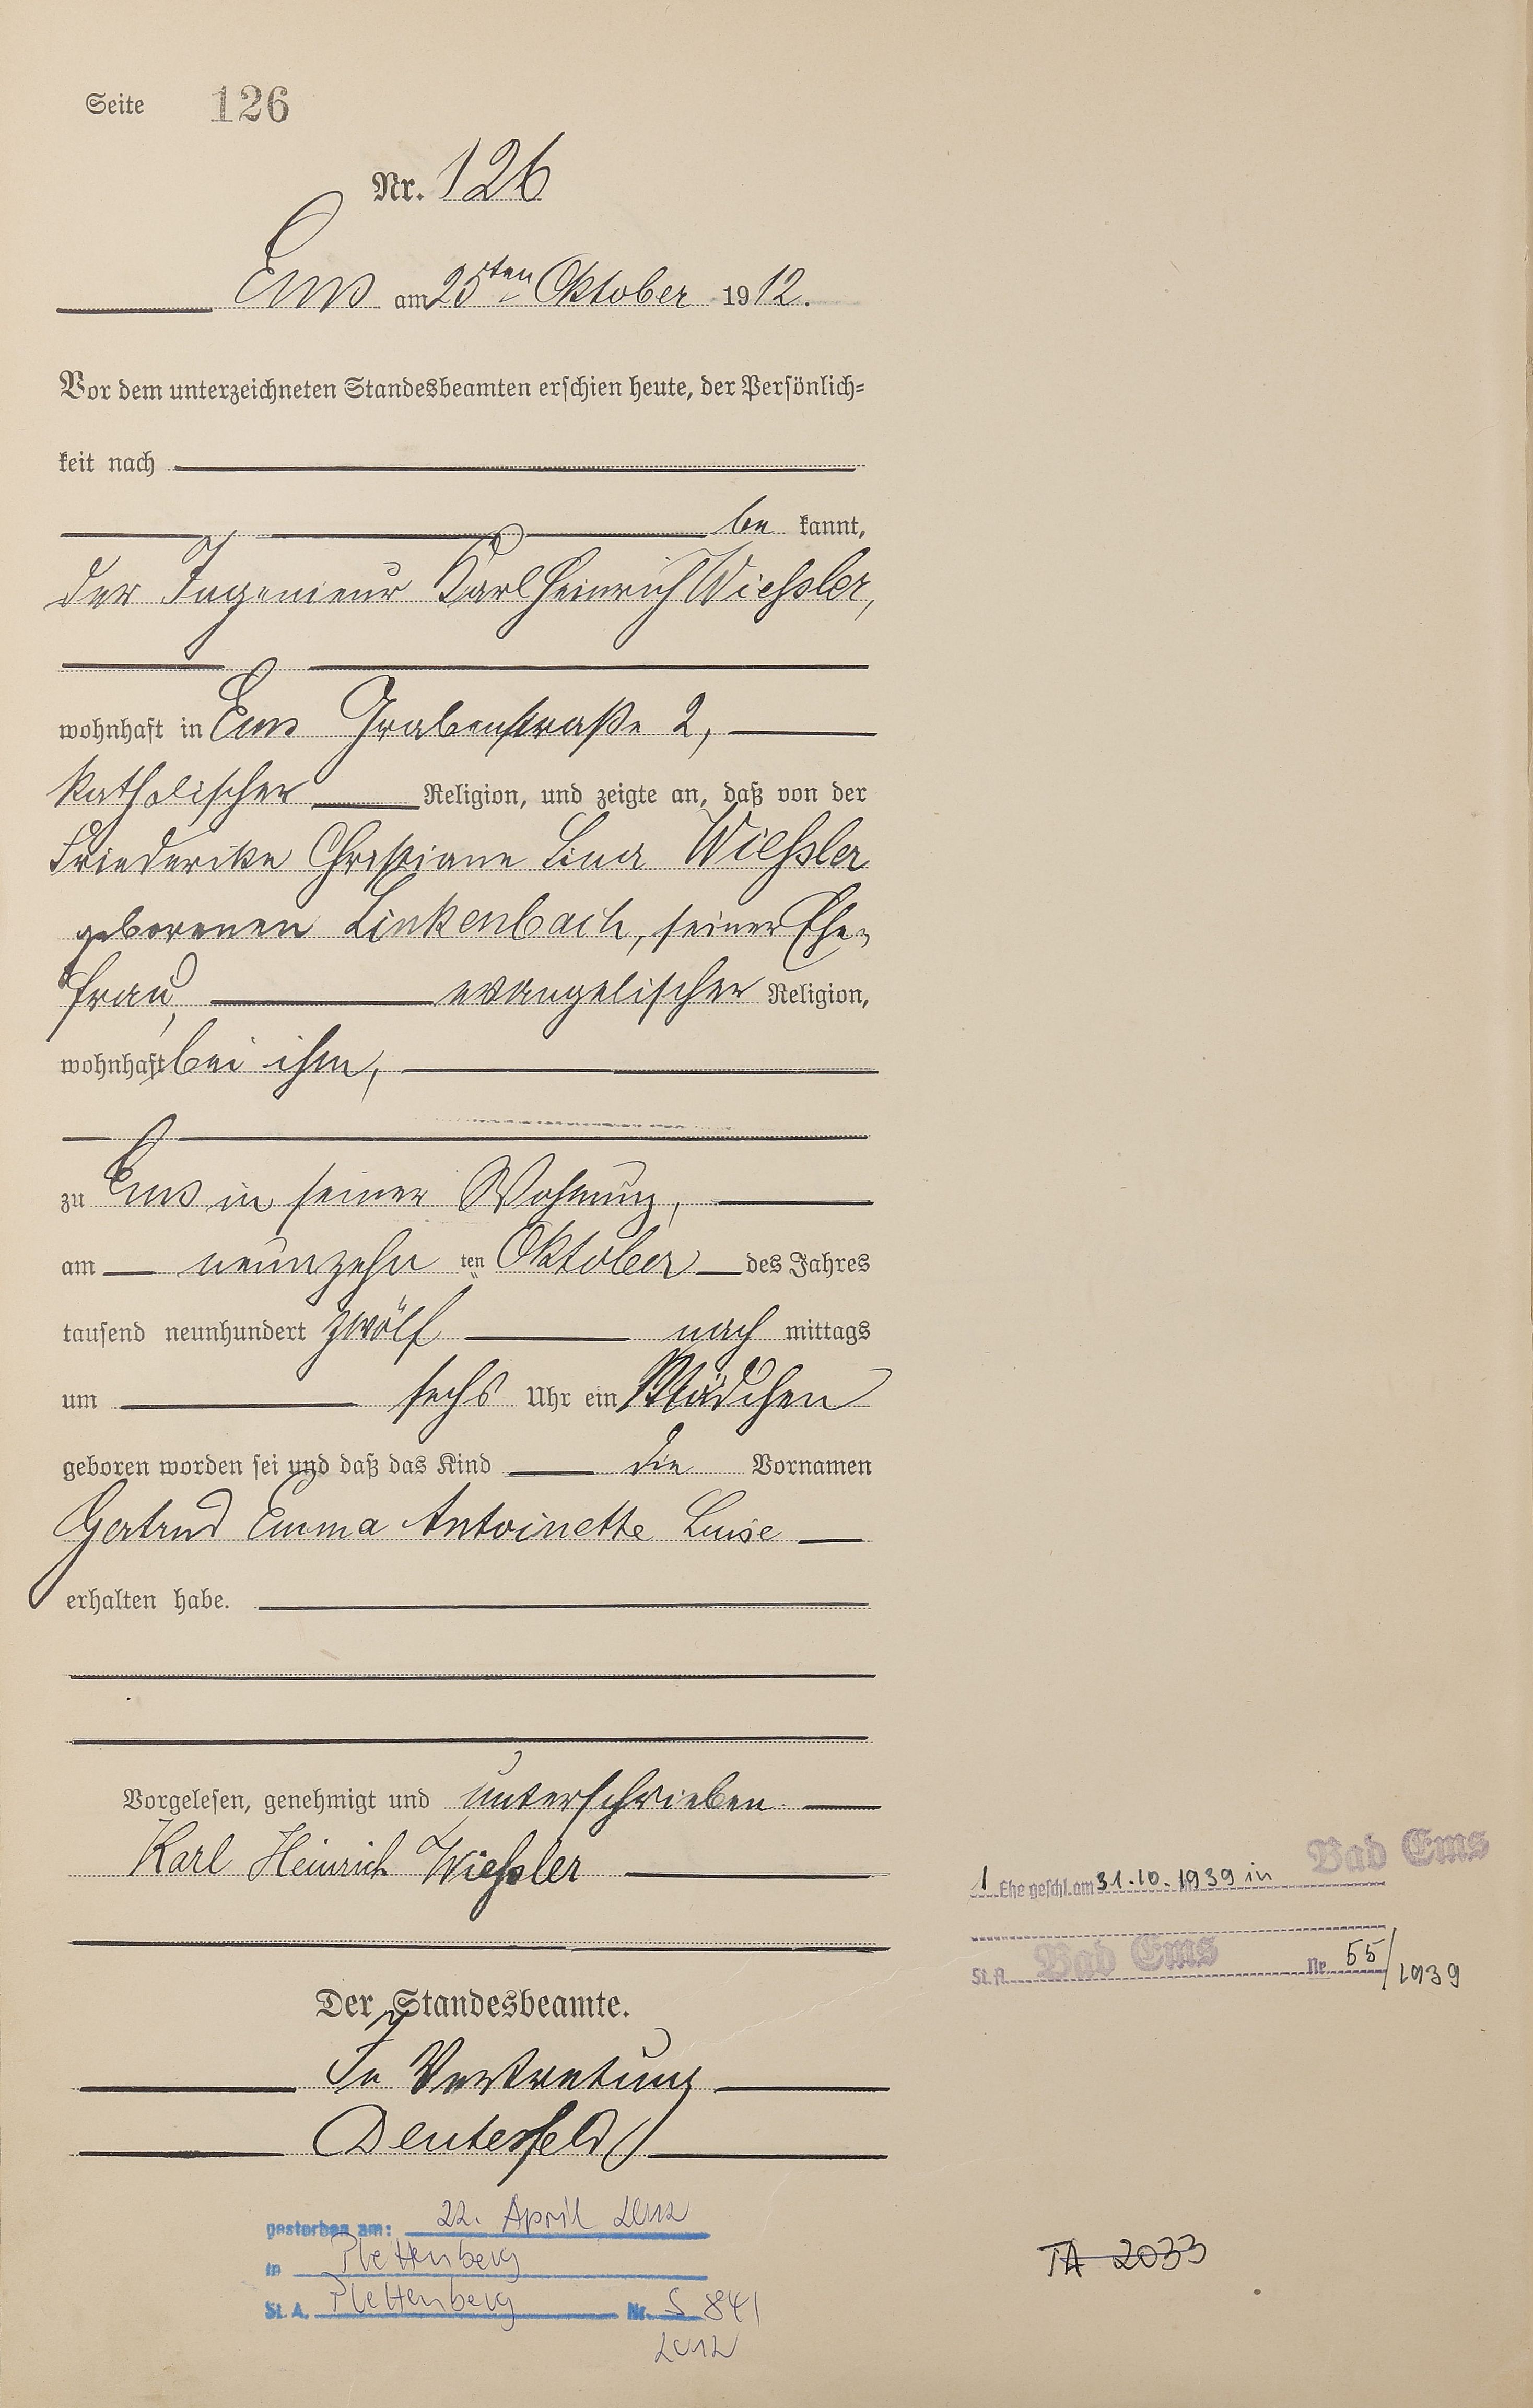 Seite 126
Nr. 126
Ems am 25ten Oktober 1912.
Vor dem unterzeichneten Standesbeamten erschien heute, der Persönlich-
keit nach
be kannt,
der Ingenieur Karl Heinrich Wießler,
wohnhaft in Ems Grabenstraße 2,
katholischer Religion, und zeigte an, daß von der
Friederike Christiane Lina Wießler
geborenen Linkenbach, seiner Ehe-
frau, evangelischer Religion,
wohnhaft bei ihm,
zu Ems in seiner Wohnung,
am neunzehn ten Oktober des Jahres
tausend neunhundert zwölf nach mittags
um sechs Uhr ein Mädchen
geboren worden sei und daß das Kind die Vornamen
Gertrud Emma Antoinette Luise
erhalten habe.
Vorgelesen, genehmigt und unterschrieben
Karl Heinrich Wießler
Der Standesbeamte.
In Vertretung
Deutesfeld
gestorben am: 22. April 2012
in Plettenberg
St. A. Plettenberg Nr. S 841
2012
1 Ehe geschl. am 31.10.1939 in Bad Ems
St. A. Bad Ems Nr. 55/1939
TA 2033